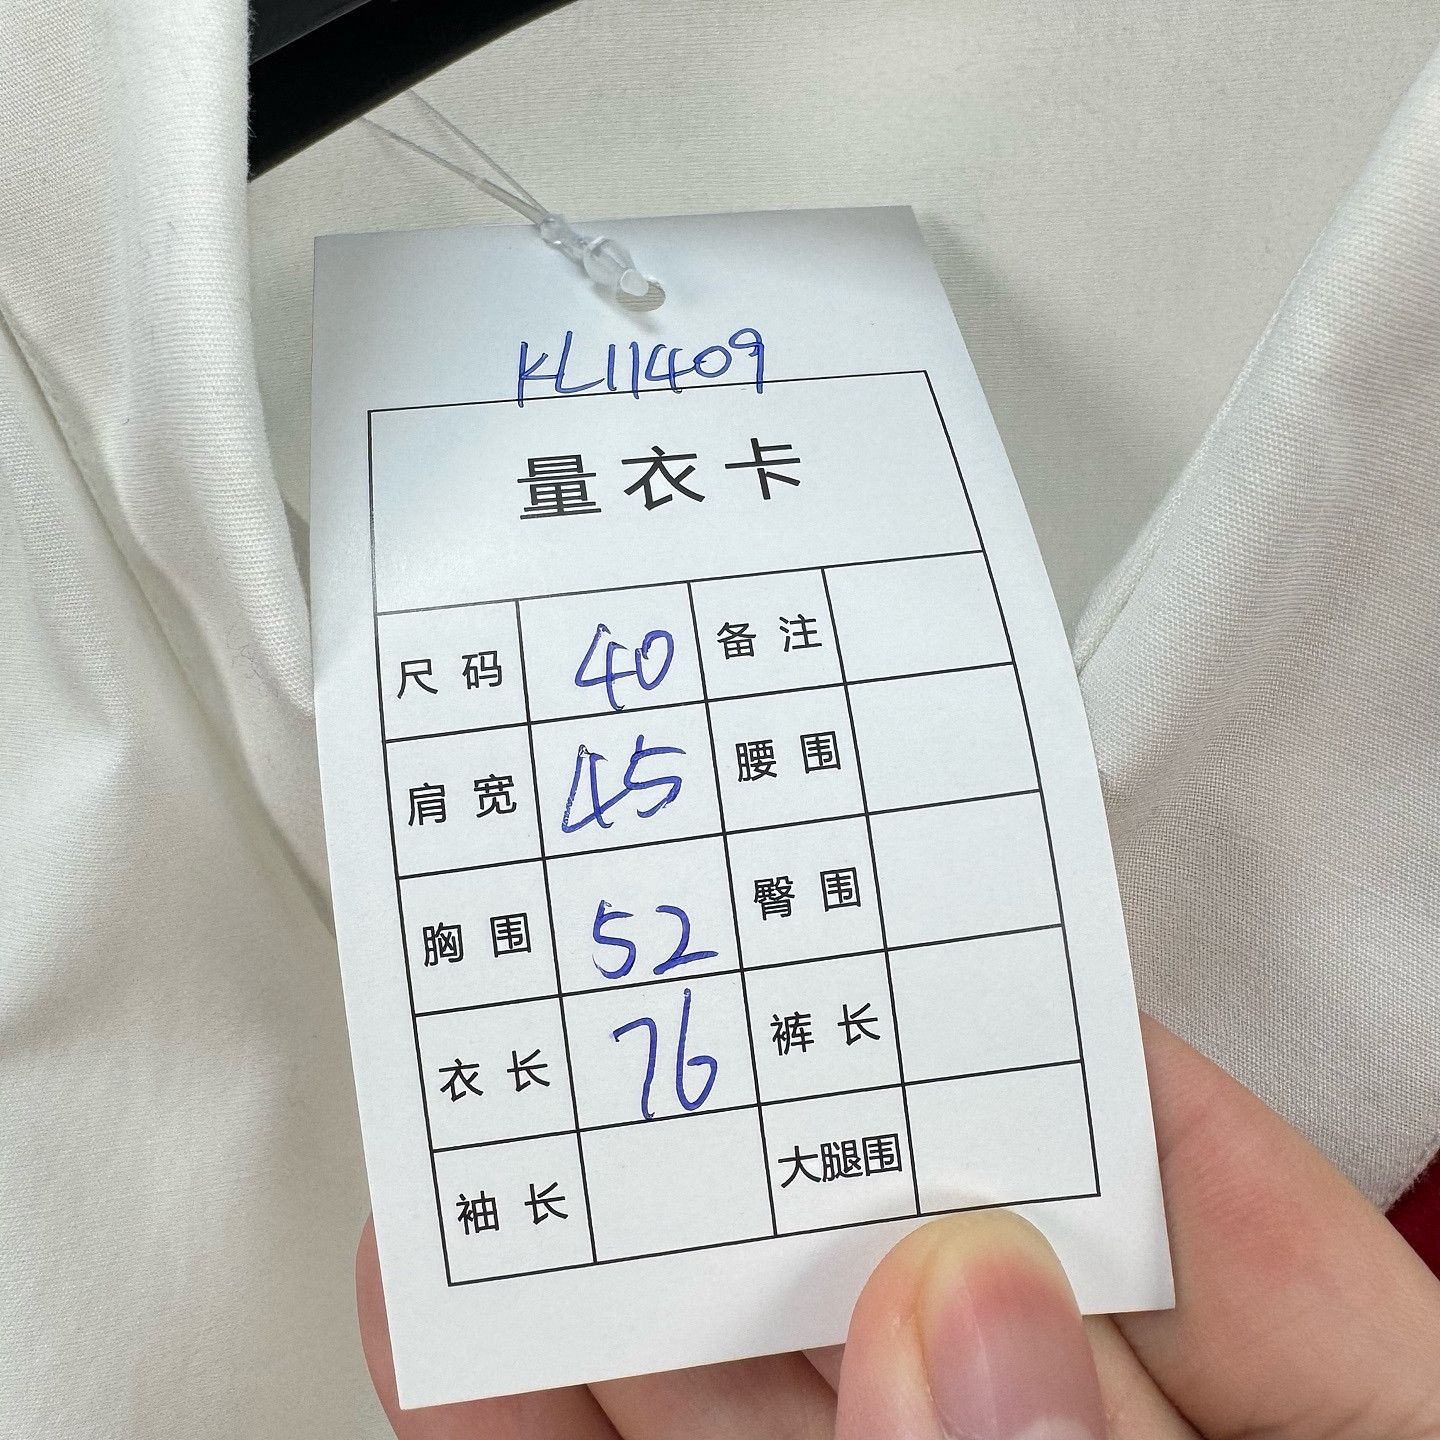 KL11409
量衣卡
尺码 40 备注
肩宽 45 腰围
胸围 52 臀围
衣长 76 裤长
袖长 大腿围